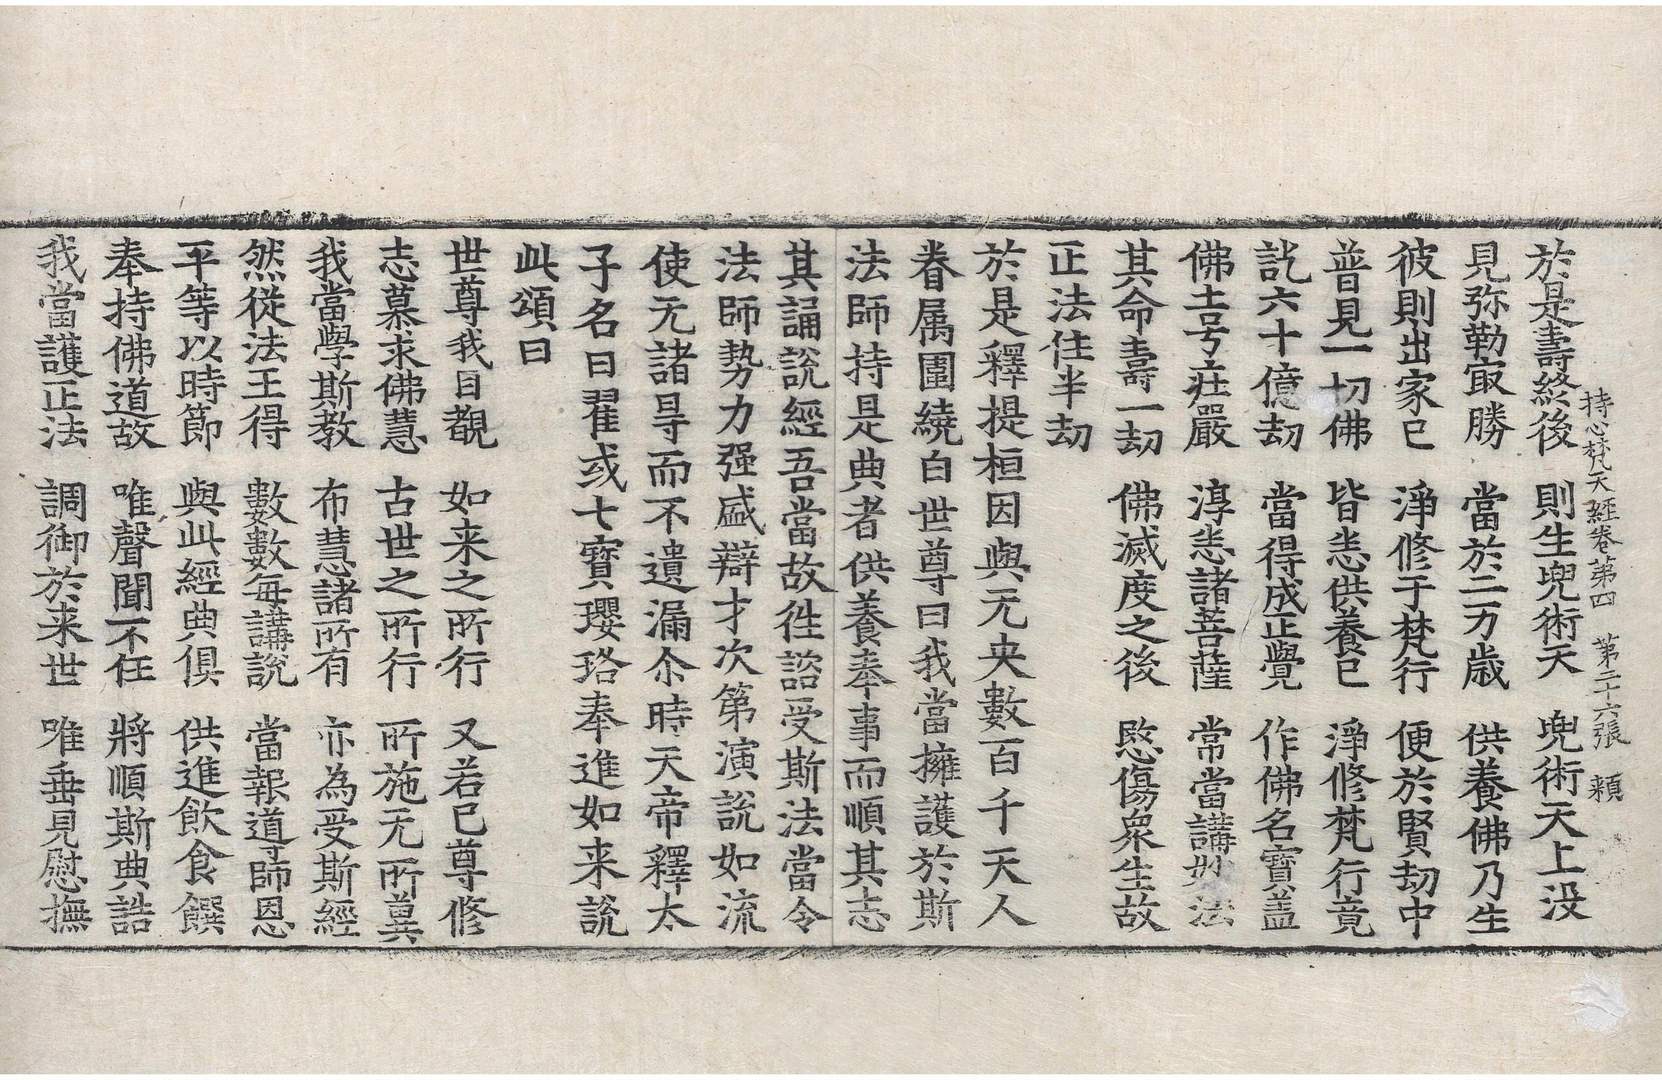 持心梵天經卷第四　第二十六張　賴
於是壽終後　則生兜術天　兜術天上没
見弥勒㝡勝　當於二万歳　供養佛乃生
彼則出家已　淨修于梵行　便於賢劫中
普見一切佛　皆悉供養已　淨修梵行竟
訖六十億劫　當得成正覺　作佛名寶盖
佛土号莊嚴　淳悉諸菩薩　常當講此法
其命壽一劫　佛滅度之後　愍傷衆生故
正法住半劫
於是釋提桓因與无央數百千天人
眷属圍繞白世尊曰我當擁護於斯
法師持是典者供養奉事而順其志
其誦說經吾當故徃諮受斯法當令
法師勢力强盛辯才次第演說如流
使无諸㝵而不遺漏尒時天帝釋太
子名曰翟或七寶瓔珞奉進如来說
此頌曰
世尊我目覩　如来之所行　又若已尊修
志慕求佛慧　古世之所行　所施无所兾
我當學斯教　布慧諸所有　亦為受斯經
然從法王得　數數每講說　當報導師恩
平等以時節　與此經典俱　供進飲食饌
奉持佛道故　唯聲聞不任　將順斯典誥
我當護正法　調御於来世　唯垂見慰撫